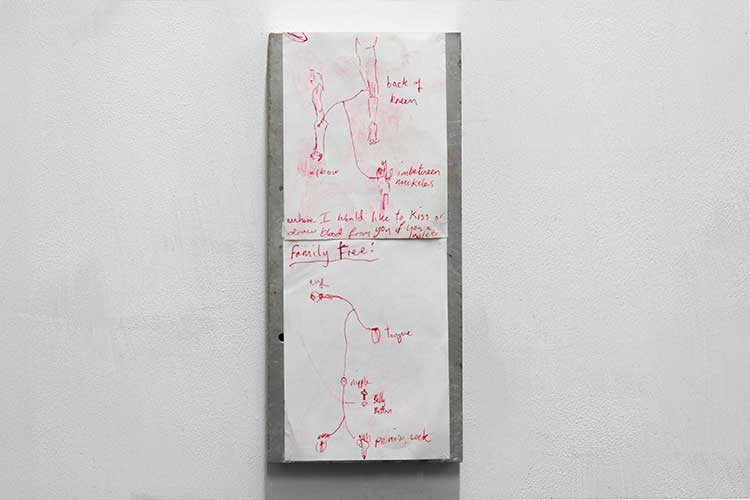 back of
kneem
elbow
inbetween
nuckeles
where I would like to kiss or
draw blood from you if you
Family Tree:
tongue
nipple
Belly
Button
penis, cock